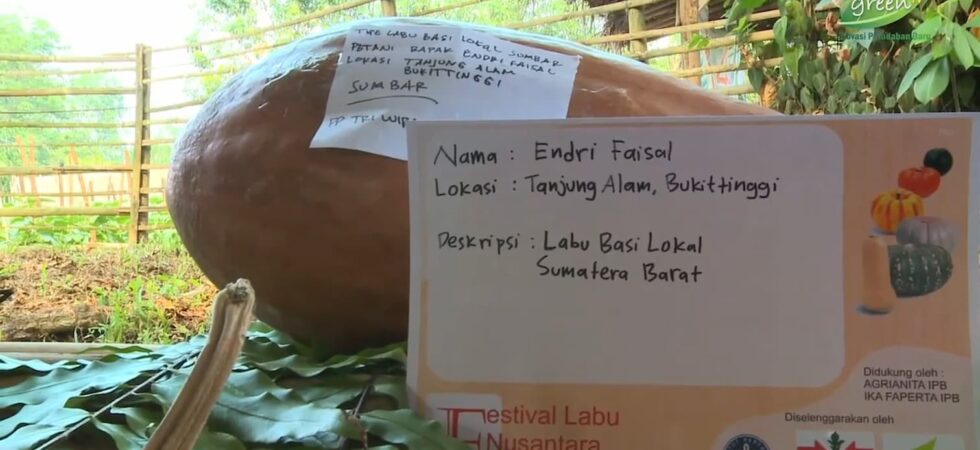 green
Inovasi Peradaban Baru
TIPE LABU BASI LOKAL SUMBAR
PETANI BAPAK ENDRI FAISAL
LOKASI TANJUNG ALAM
BUKITTINGGI
SUMBAR
Nama : Endri Faisal
Lokasi : Tanjung Alam, Bukittinggi
Deskripsi : Labu Basi Lokal
Sumatera Barat
Didukung oleh :
AGRIANITA IPB
IKA FAPERTA IPB
Festival Labu
Nusantara
Diselenggarakan oleh